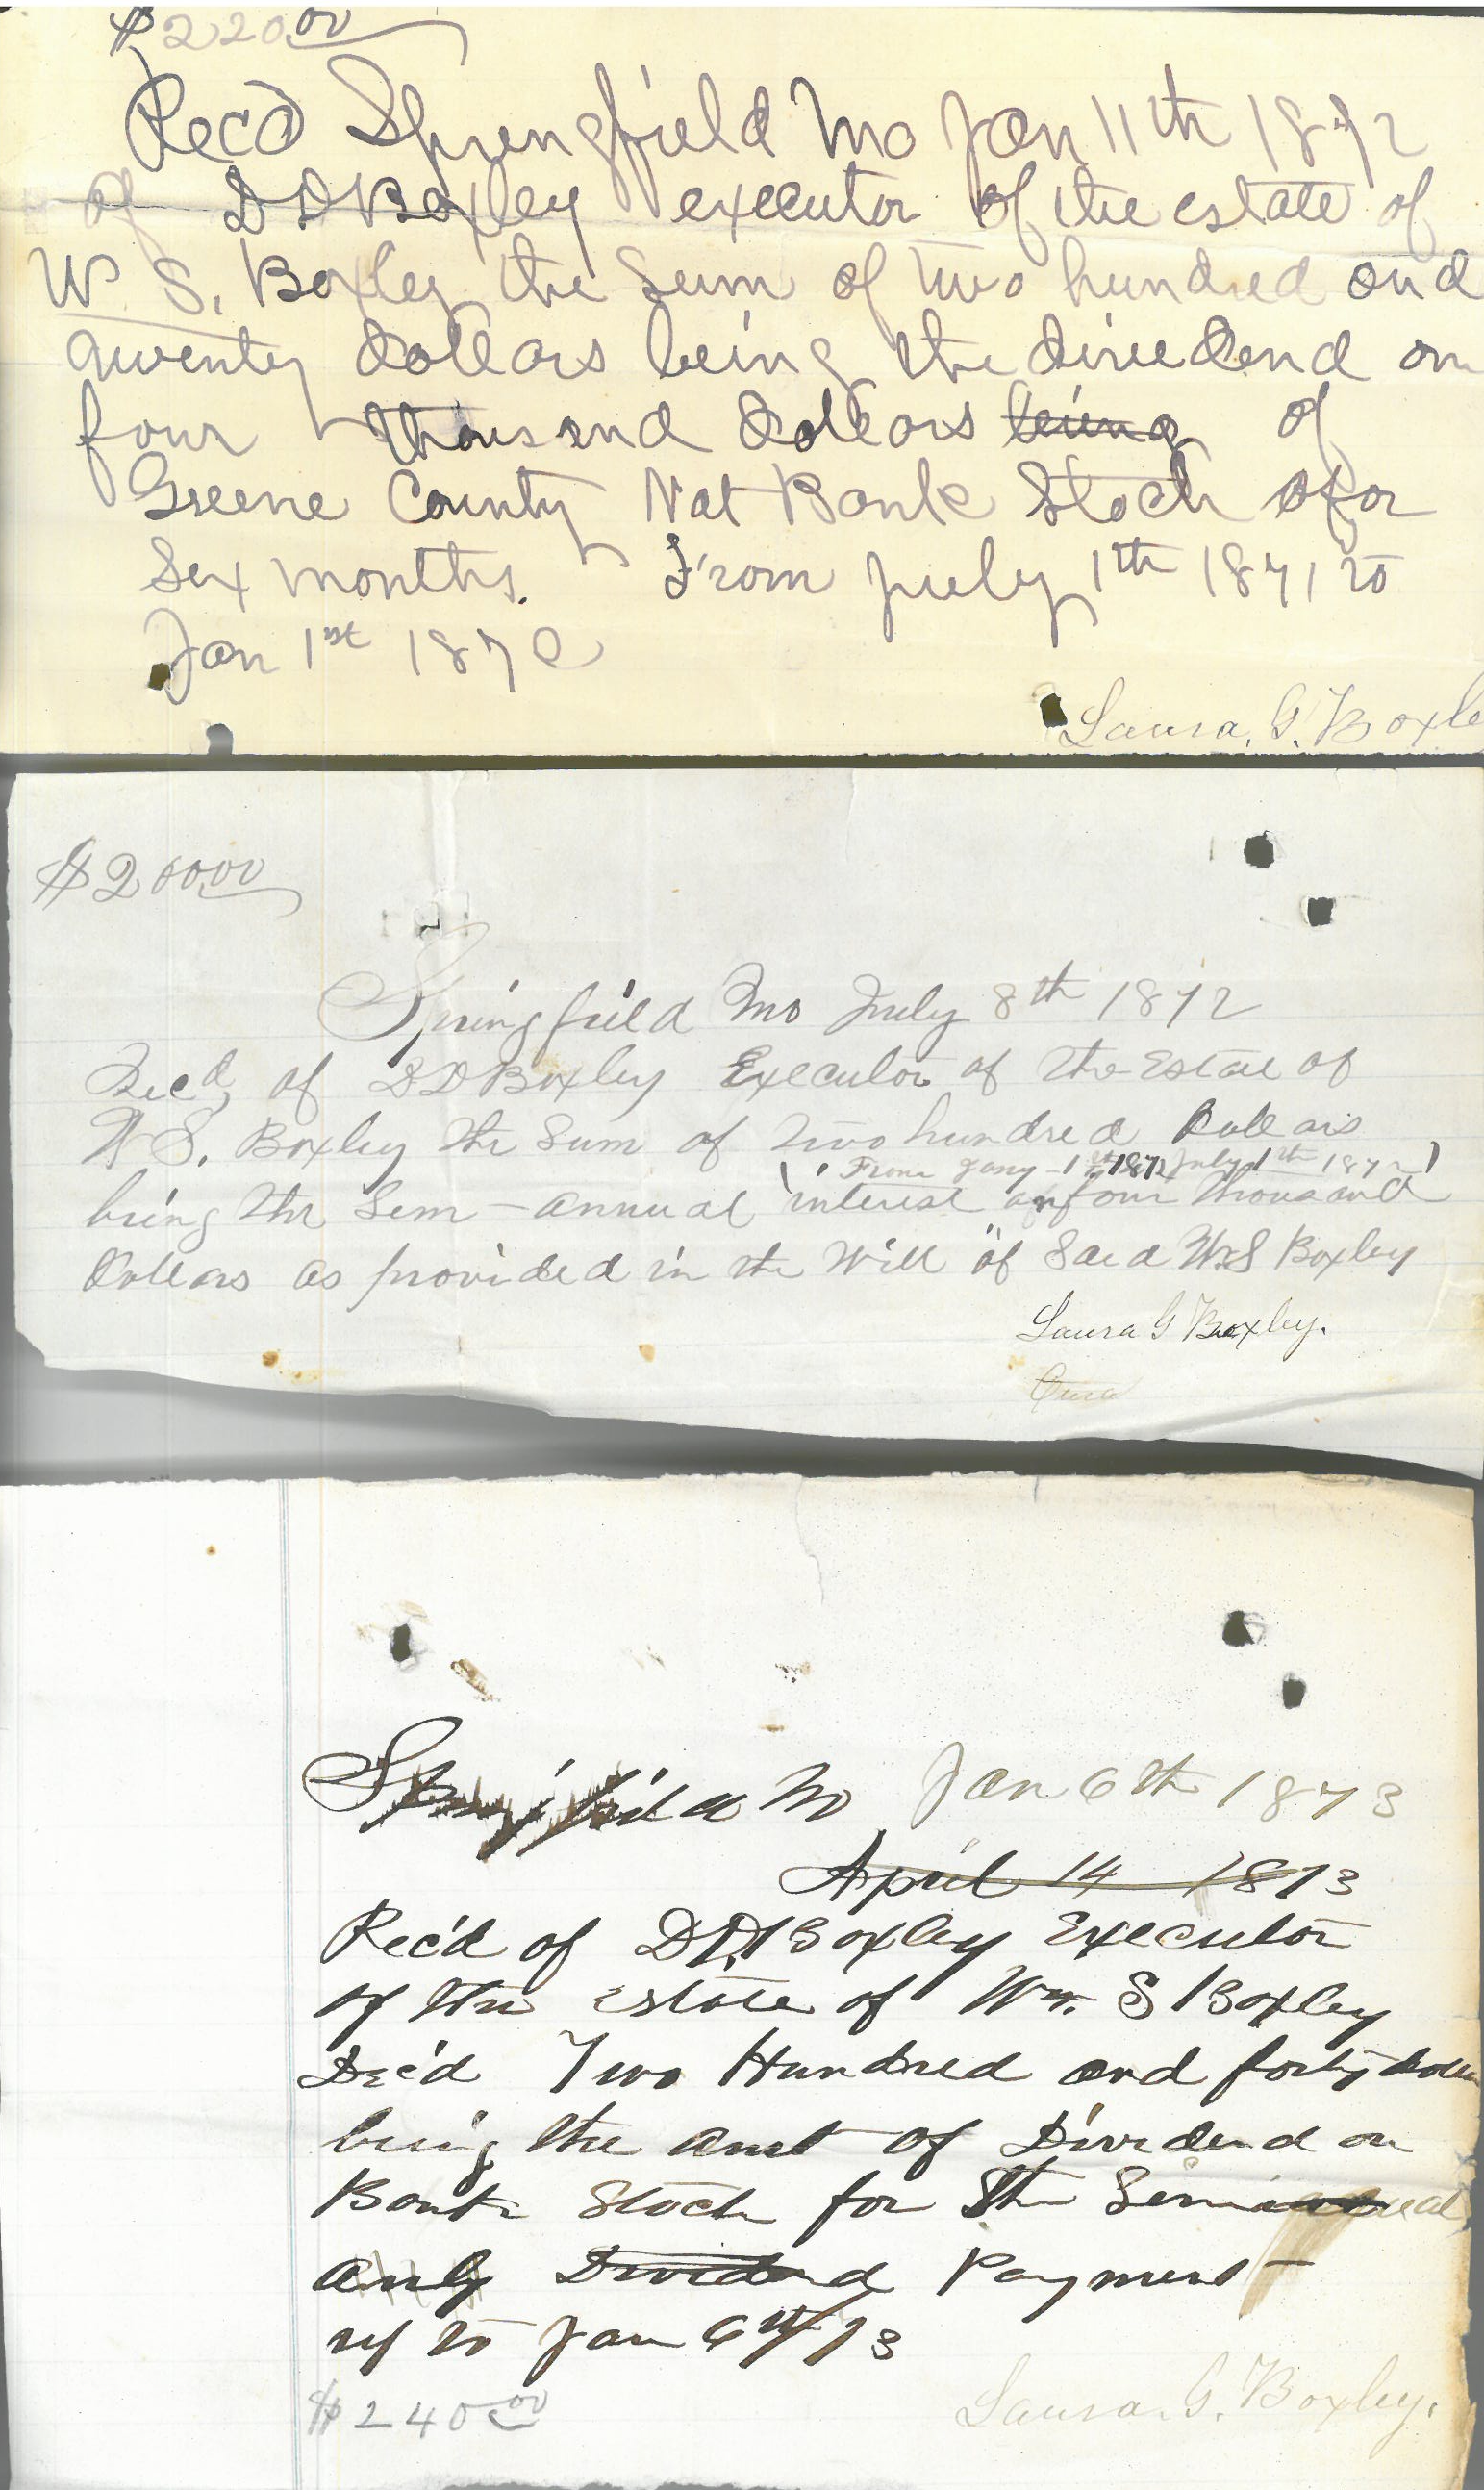 $220.00
Rec'd Springfield Mo Jan 11th 1872
of D D Boxley executor of the estate of
W S. Boxley the sum of two hundred and
twenty dollars being the diviedend on
four thousand dollars being of
Greene County Nat Bank Stock for
Six months. From July 1th 1871 to
Jan 1st 1872
Laura. G. Boxle
$200.00
Springfield Mo July 8th 1872
Recd, of D D Boxley Executor of the Estate of
W S. Boxley the Sum of two hundred Dollars
From Jany 1st 1872 July 1th 1872
being the Sem-annual interest on four thousand
Dollars as provided in the Will of Said W.S Boxley
Laura G Boxley.
Springfield Mo Jan 6th 1873
April 14 1873
Rec'd of D.D. Boxley Executor
of the estate of Wm. S Boxley
Dec'd Two Hundred and forty dollars
being the amt of Dividend on
Bank Stock for the Semi
Dividend Payment
up to Jan 6th/73
$240.00
Laura. G. Boxley.